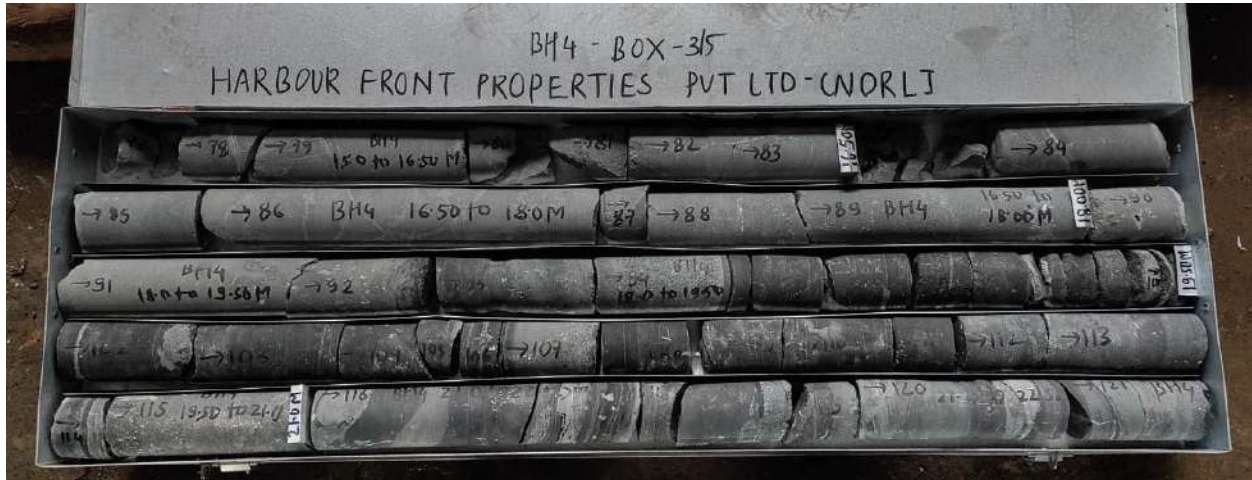 BH4 - BOX - 3/5
HARBOUR FRONT PROPERTIES PVT LTD - (NORL)
→78 →79 BH4 →81 →82 →83 16.50 →84
15.0 to 16.50 M
→85 →86 BH4 16.50 to 18.0M →87 →88 →89 BH4 16.50 to 18.00M 18.00 →90
→91 BH4 →92 BH4 19.50M
18.0 to 19.50M 18.0 to 19.50
→103 →109 →112 →113
114 →115 19.50 to 21.0 21.0M →116 BH4 →120 →121 BH4